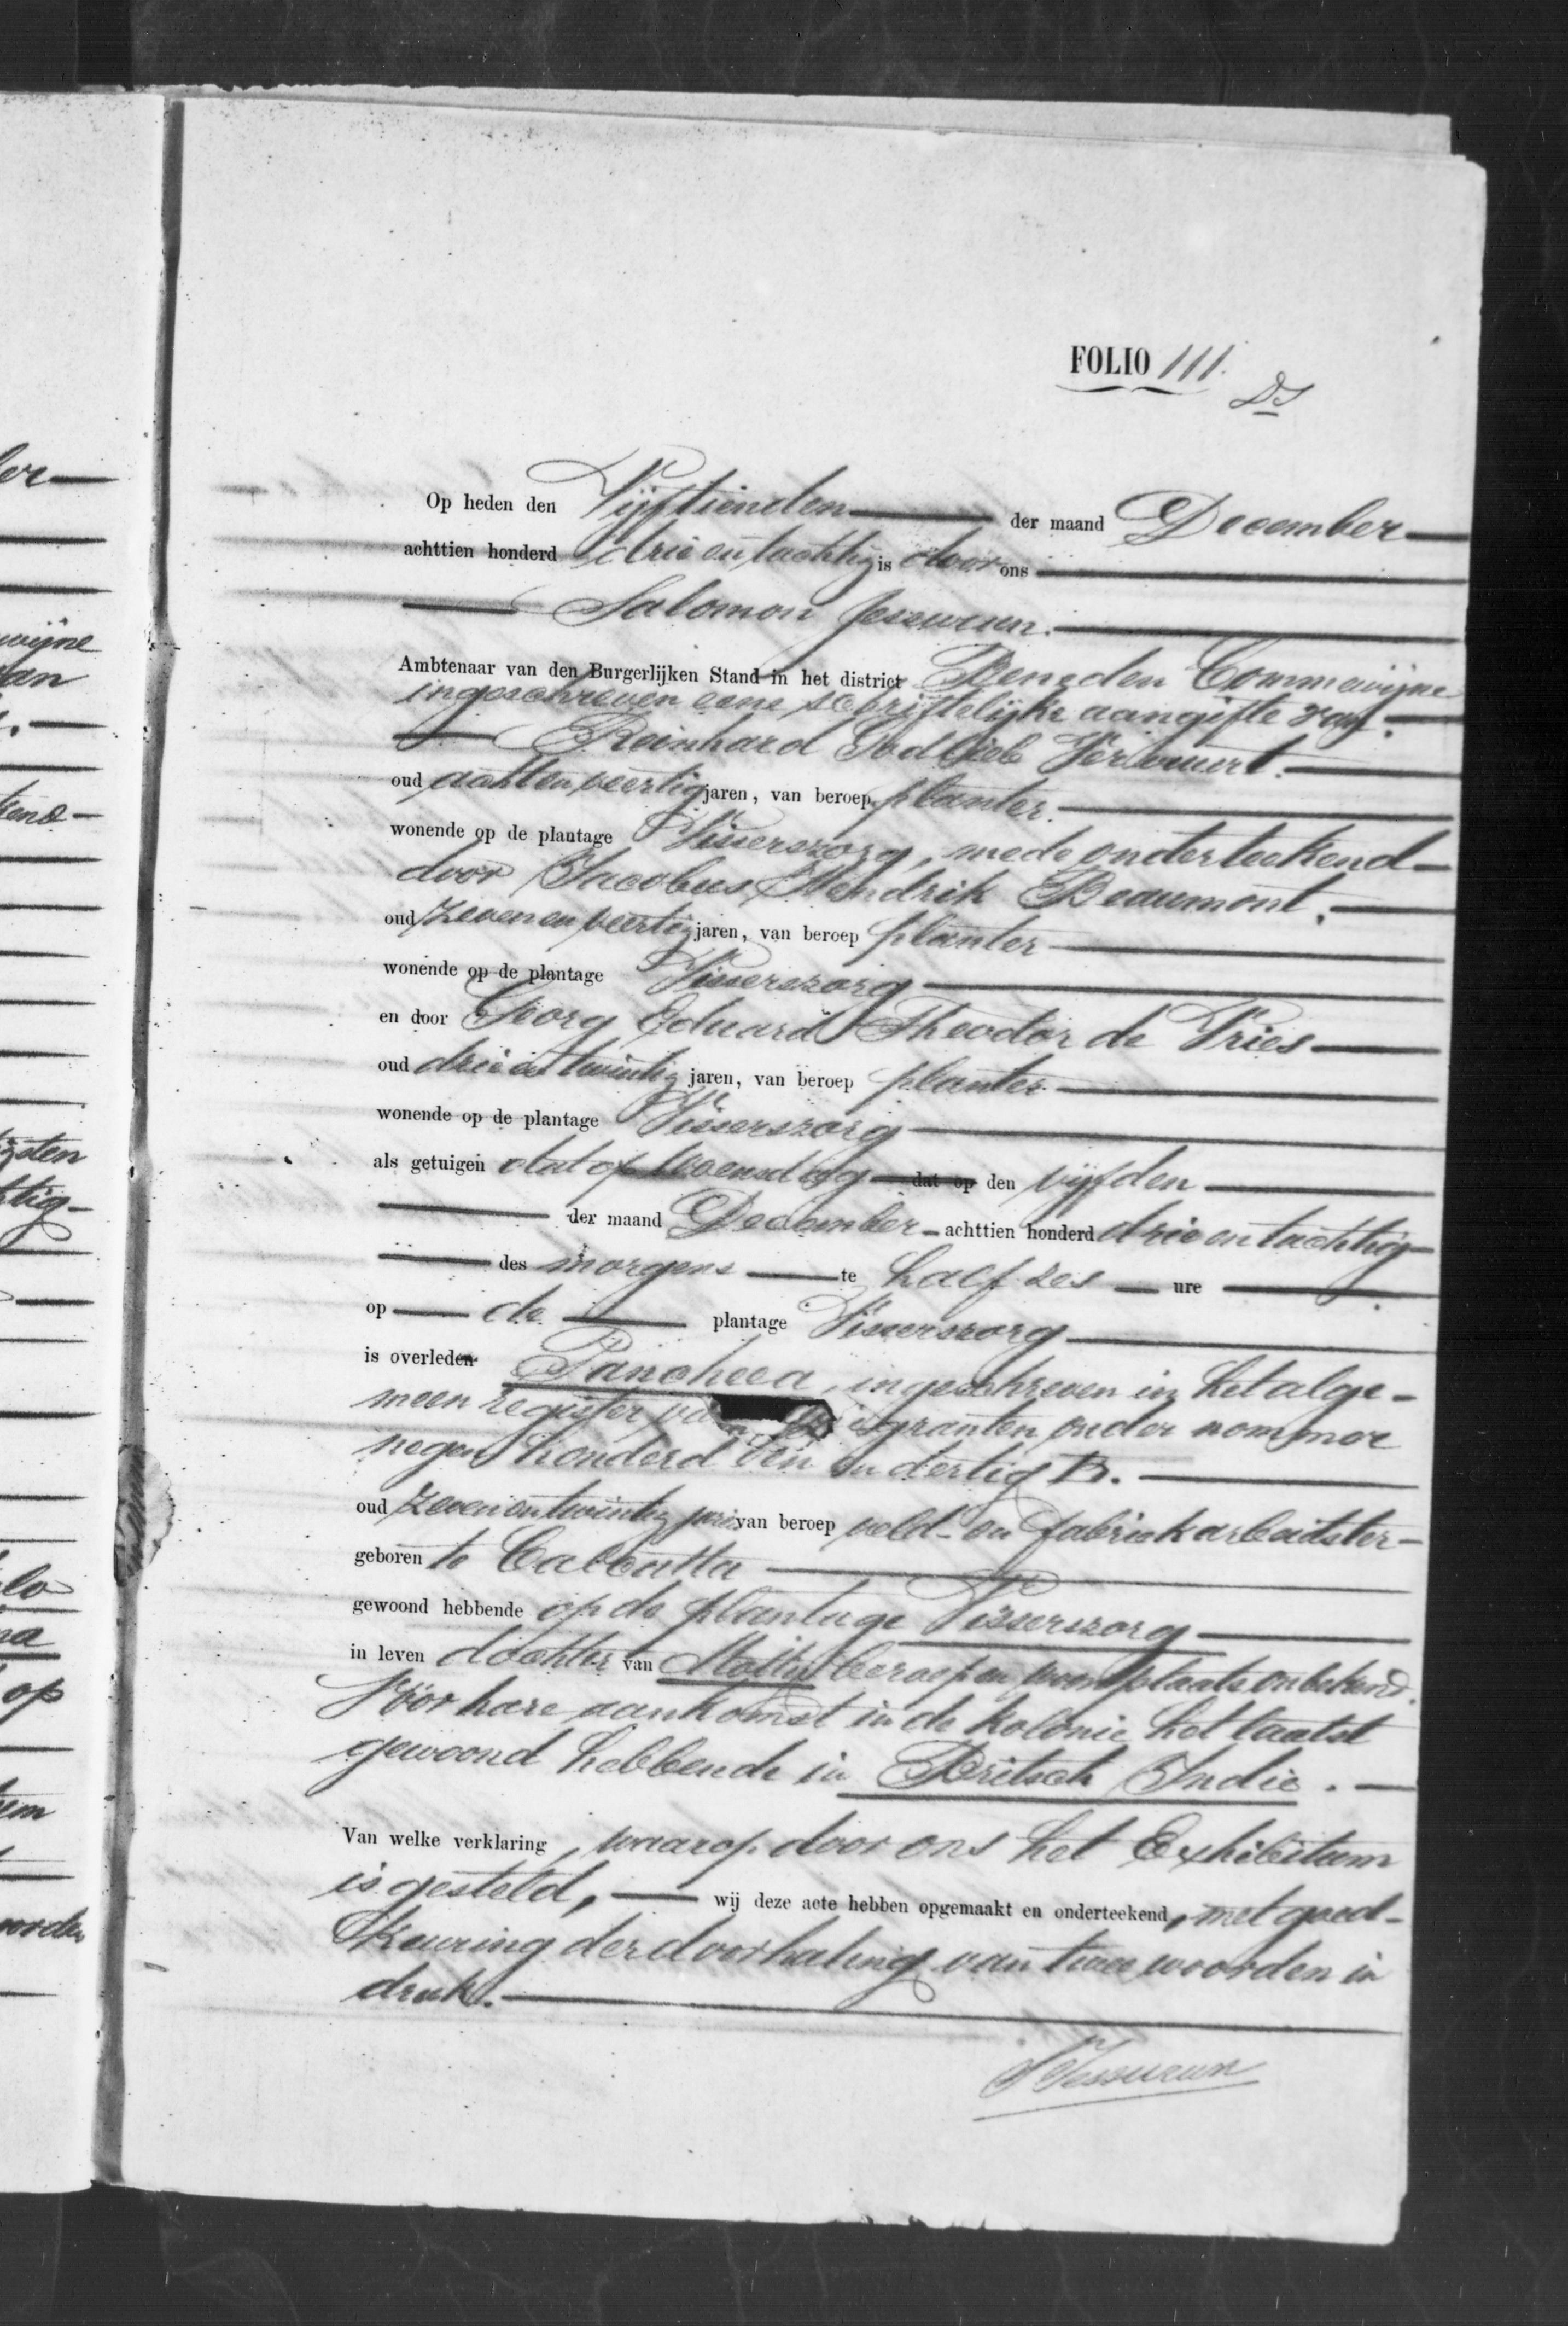 FOLIO 111.
DS
Op heden den Vijftienden der maand December
achttien honderd drie en tachtig is door ons
Salomon Jessurun.
Ambtenaar van den Burgerlijken Stand in het district Beneden Commewijne
ingeschreven eene schriftelijke aangifte van
Reinhard Godlieb
oud achtenveertig jaren, van beroep planter.
wonende op de plantage Visserszorg, mede onderteekend
door Jacobus Hendrik Beaumont,
oud zeven en veertig jaren, van beroep planter
wonende op de plantage Visserszorg
en door Georg Eduard Theodor de Vries
oud drie en twintig jaren, van beroep planter
wonende op de plantage Visserszorg
als getuigen dat op Woensdag dat op den vijfden
der maand December achttien honderd drie en tachtig
des morgens te half zes ure
op de plantage Visserszorg
is overleden Pancheea, ingeschreven in het alge-
meen register van granten onder nommer
negen honderd een en dertig B.
oud zeven en twintig jaren van beroep veld- en fabriekarbeidster
geboren te Calcutta
gewoond hebbende op de plantage Visserszorg
in leven dochter van beroep en woonplaats onbekend.
Vóór hare aankomst in de kolonie het laatst
gewoond hebbende in Britsch Indie.
Van welke verklaring, waarop door ons het Exhibitum
is gesteld, wij deze acte hebben opgemaakt en onderteekend, met goed-
keuring der doorhaling van twee woorden in
druk.
SJessurun
er
wijne
an
end
sten
tig
lo
na
op
em
orden